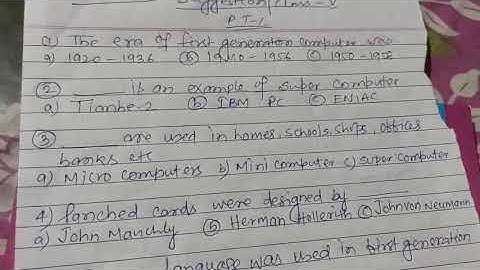 Class - V
P T - 1
a) The era of first generation computer was
a) 1920 - 1936 b) 1940 - 1956 c) 1950 - 1958
② ______ is an example of super computer
a) Tianhe-2 b) IBM PC c) ENIAC
③ ______ are used in homes, schools, shops, offices
banks etc
a) Micro computers b) Mini computer c) super computer
4) Panched cards were designed by ______
a) John Mauchly b) Herman Hollerith c) John von Neumann
language was used in first generation